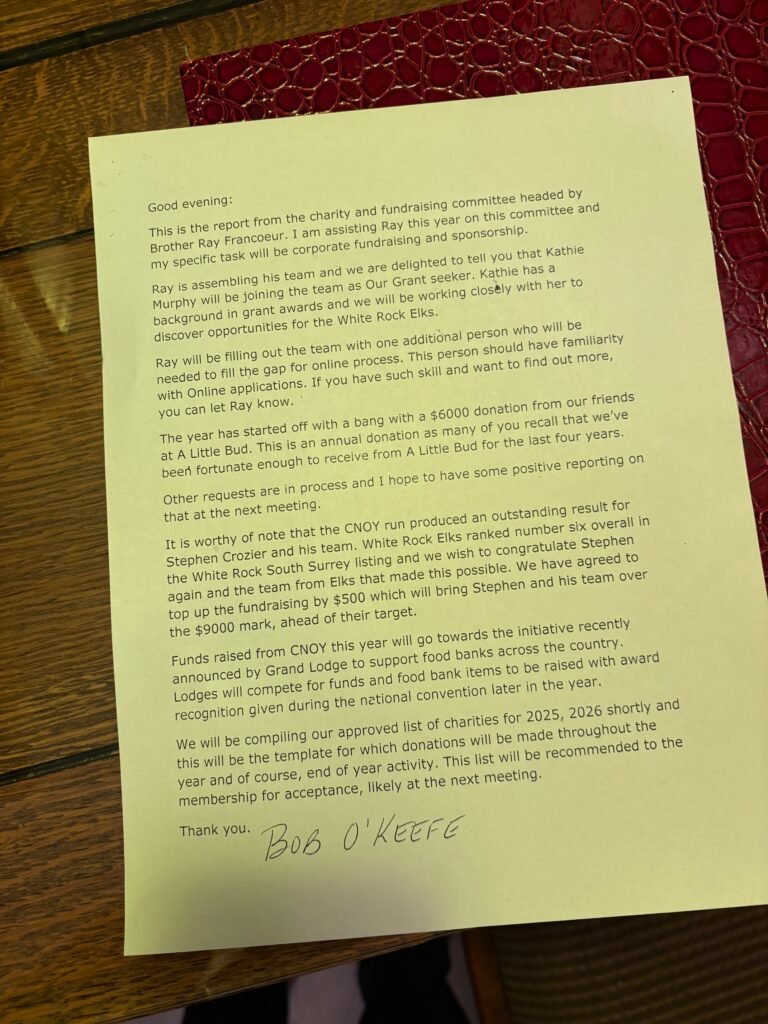 Good evening:
This is the report from the charity and fundraising committee headed by
Brother Ray Francoeur. I am assisting Ray this year on this committee and
my specific task will be corporate fundraising and sponsorship.
Ray is assembling his team and we are delighted to tell you that Kathie
Murphy will be joining the team as Our Grant seeker. Kathie has a
background in grant awards and we will be working closely with her to
discover opportunities for the White Rock Elks.
Ray will be filling out the team with one additional person who will be
needed to fill the gap for online process. This person should have familiarity
with Online applications. If you have such skill and want to find out more,
you can let Ray know.
The year has started off with a bang with a $6000 donation from our friends
at A Little Bud. This is an annual donation as many of you recall that we've
been fortunate enough to receive from A Little Bud for the last four years.
Other requests are in process and I hope to have some positive reporting on
that at the next meeting.
It is worthy of note that the CNOY run produced an outstanding result for
Stephen Crozier and his team. White Rock Elks ranked number six overall in
the White Rock South Surrey listing and we wish to congratulate Stephen
again and the team from Elks that made this possible. We have agreed to
top up the fundraising by $500 which will bring Stephen and his team over
the $9000 mark, ahead of their target.
Funds raised from CNOY this year will go towards the initiative recently
announced by Grand Lodge to support food banks across the country.
Lodges will compete for funds and food bank items to be raised with award
recognition given during the national convention later in the year.
We will be compiling our approved list of charities for 2025, 2026 shortly and
this will be the template for which donations will be made throughout the
year and of course, end of year activity. This list will be recommended to the
membership for acceptance, likely at the next meeting.
Thank you. BOB O'KEEFE